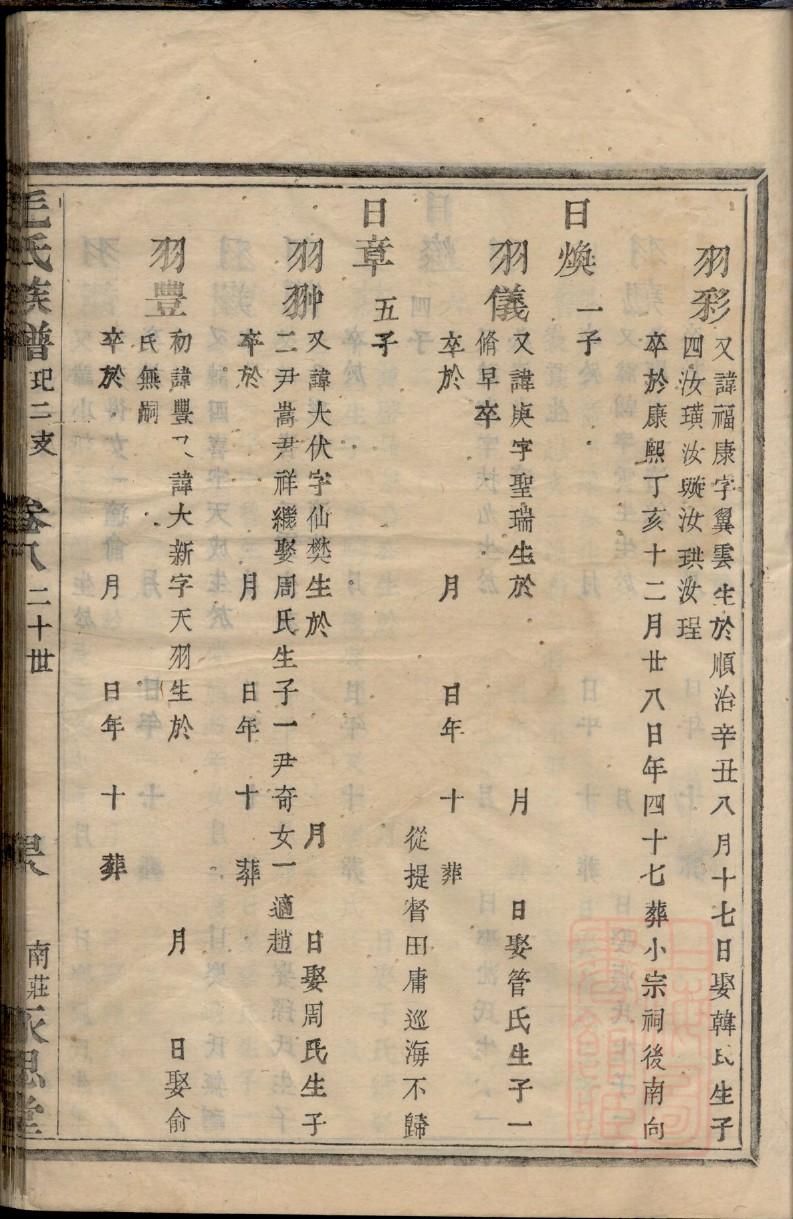 羽彩
又諱福康字翼雲生於順治辛丑八月十七日娶韓氏生子
四汝璜汝璇汝珙汝珵
卒於康熙丁亥十二月廿八日年四十七葬小宗祠後南向
日煥 一子
羽儀
又諱庚字聖瑞生於 月 日娶管氏生子一
脩早卒
卒於 月 日年 十 葬
從提督田庸巡海不歸
日章 五子
羽翀
又諱大伏字仙樊生於 月 日娶周氏生子
二尹嵩尹祥繼娶周氏生子一尹奇女一適趙
卒於 月 日年 十 葬
羽豐
初諱豐又諱大新字天羽生於 月 日娶俞
氏無嗣
卒於 月 日年 十 葬
毛氏族譜 玘二支 卷八 二十世 南莊永思堂